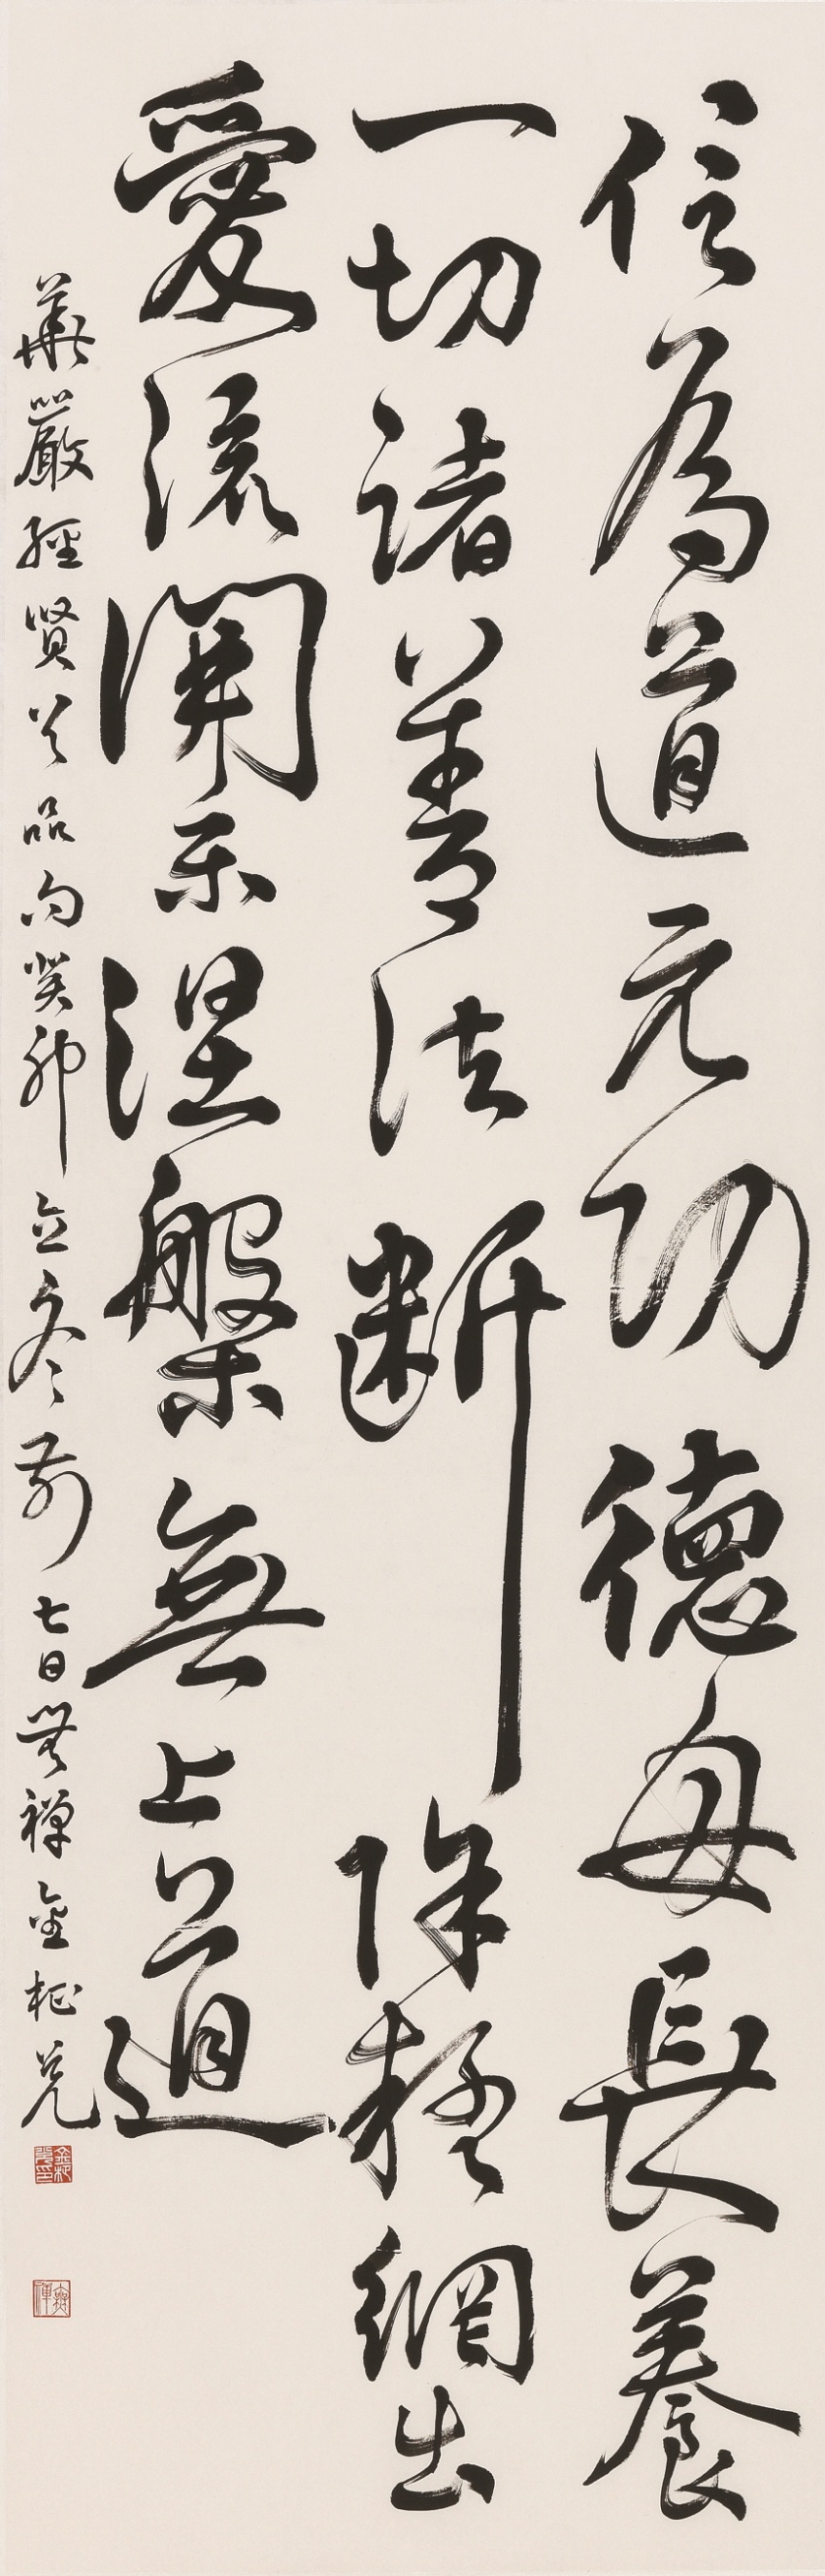 信為道元功德母長養
一切諸善法斷除疑網出
愛流開示涅槃無上道
華嚴經賢首品句癸卯立冬前七日無禪金柾
無禪